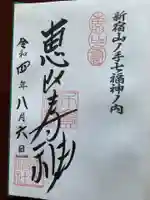 新宿山ノ手七福神ノ内
恵比寿神
令和四年八月六日